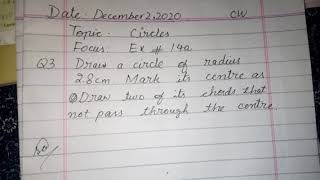 Date: December 2, 2020 CW
Topic: Circles
Focus: Ex # 14a
Q3 Draw a circle of radius
2.8cm Mark its centre as
O Draw two of its chords that
not pass through the centre.